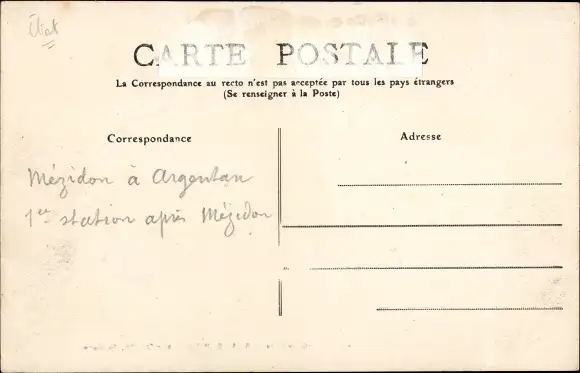 Etat
CARTE POSTALE
La Correspondance au recto n'est pas acceptée par tous les pays étrangers
(Se renseigner à la Poste)
Correspondance
Adresse
Mézidon à Argentan
1ere station après Mézidon